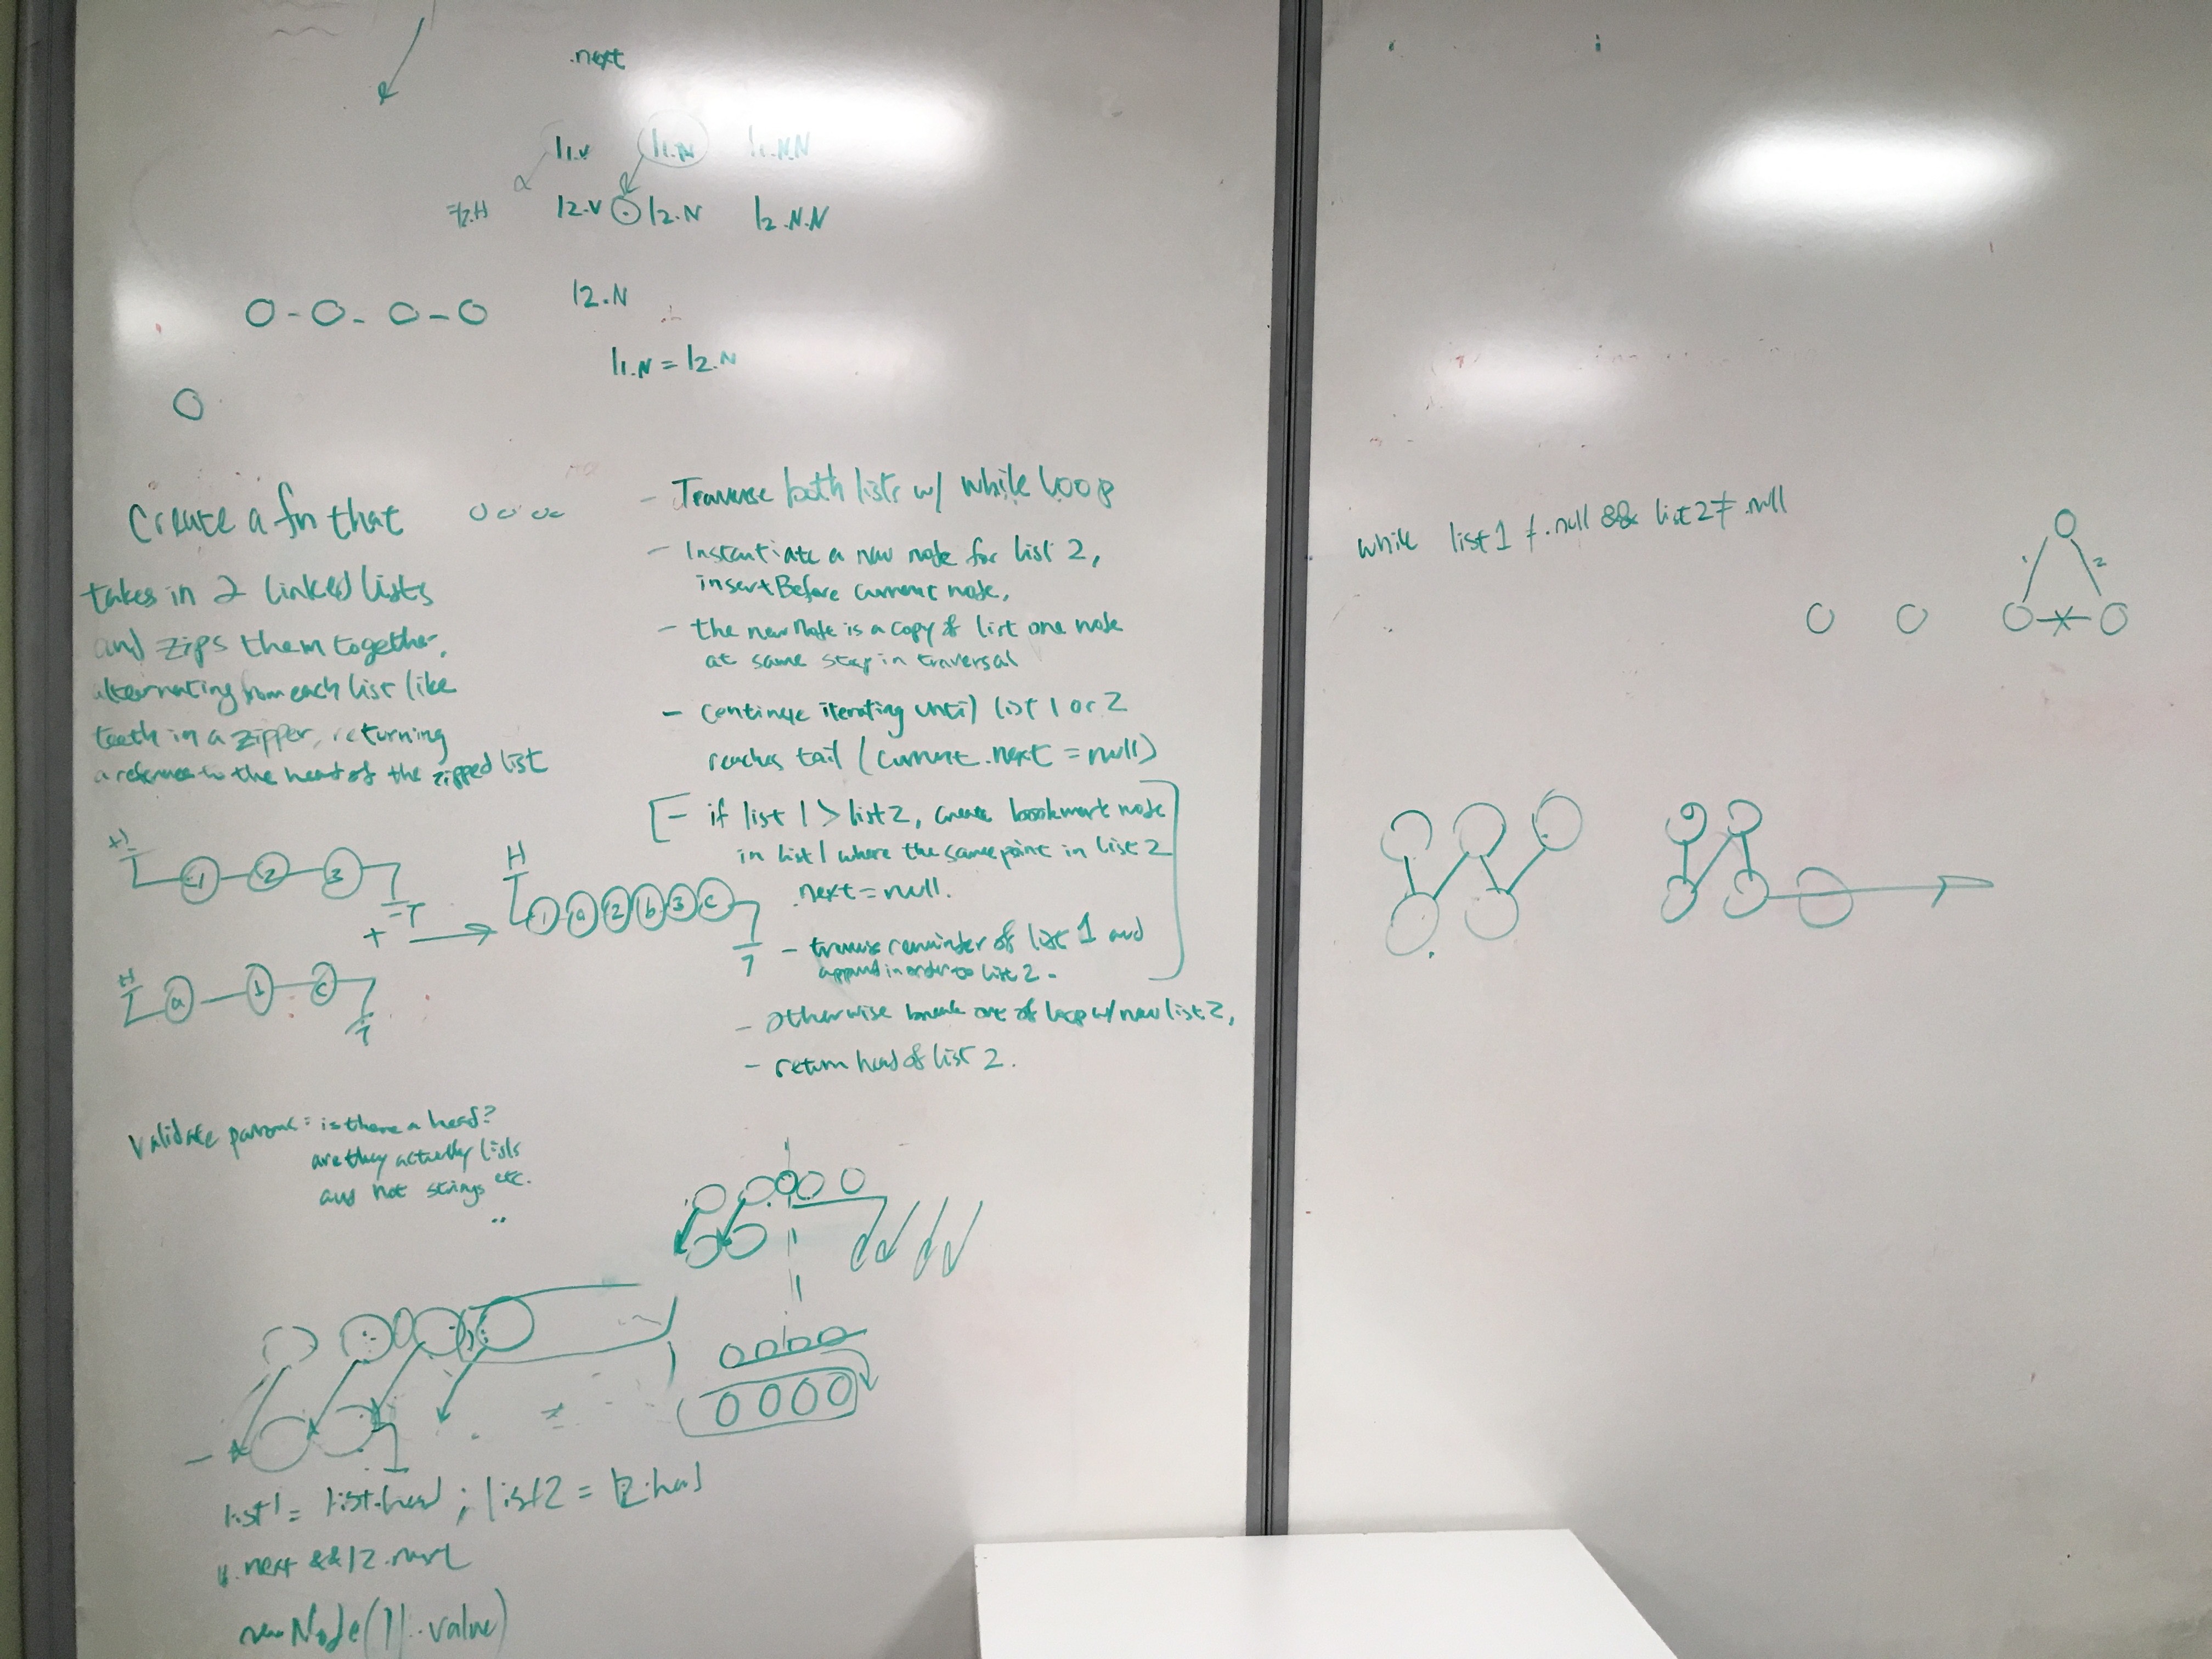 .next
l1.V l1.N l1.N.N
l2.H l2.V l2.N l2.N.N
l2.N
l1.N = l2.N
Create a fn that
takes in 2 linked lists
and zips them together,
alternating from each list like
teeth in a zipper, returning
a reference to the head of the zipped list
H
1 2 3
T
+
H
a b c
T
H
1 a 2 b 3 c
T
- Traverse both lists w/ while loop
- Instantiate a new node for list 2,
insertBefore current node,
- the new Node is a copy of list one node
at same step in traversal
- continue iterating until list 1 or 2
reaches tail (current.next = null)
[- if list 1 > list 2, create bookmark node
in list 1 where the same point in list 2
.next = null.
- traverse remainder of list 1 and
append in order to list 2.
- otherwise break out of loop w/ new list 2,
- return head of list 2.
Validate params: is there a head?
are they actually lists
and not strings etc.
list1 = list.head ; list2 = l2.head
l1.next && l2.next
new Node(l1.value)
while list1 ≠ .null && list2 ≠ .null
1 2